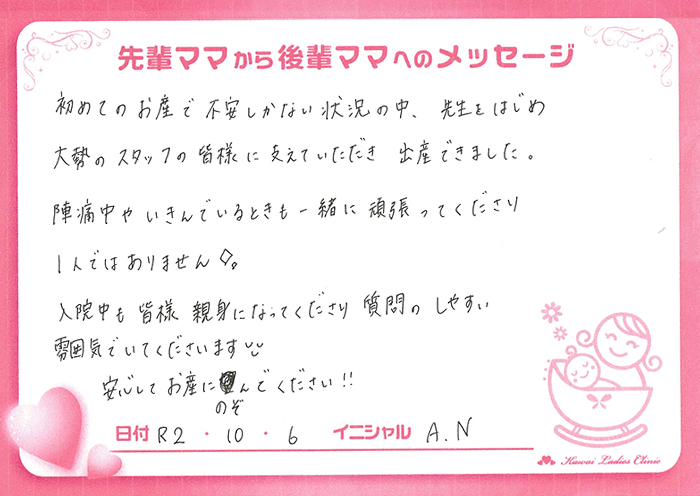 先輩ママから後輩ママへのメッセージ
初めてのお産で不安しかない状況の中、先生をはじめ
大勢のスタッフの皆様に支えていただき 出産できました。
陣痛中やいきんでいるときも一緒に頑張ってくださり
1人ではありません◇。
入院中も皆様親身になってくださり質問のしやすい
雰囲気でいてくださいます
安心してお産にんでください!!
のぞ
日付 R2・10・6 イニシャル A.N
Kawai Ladies Clinic